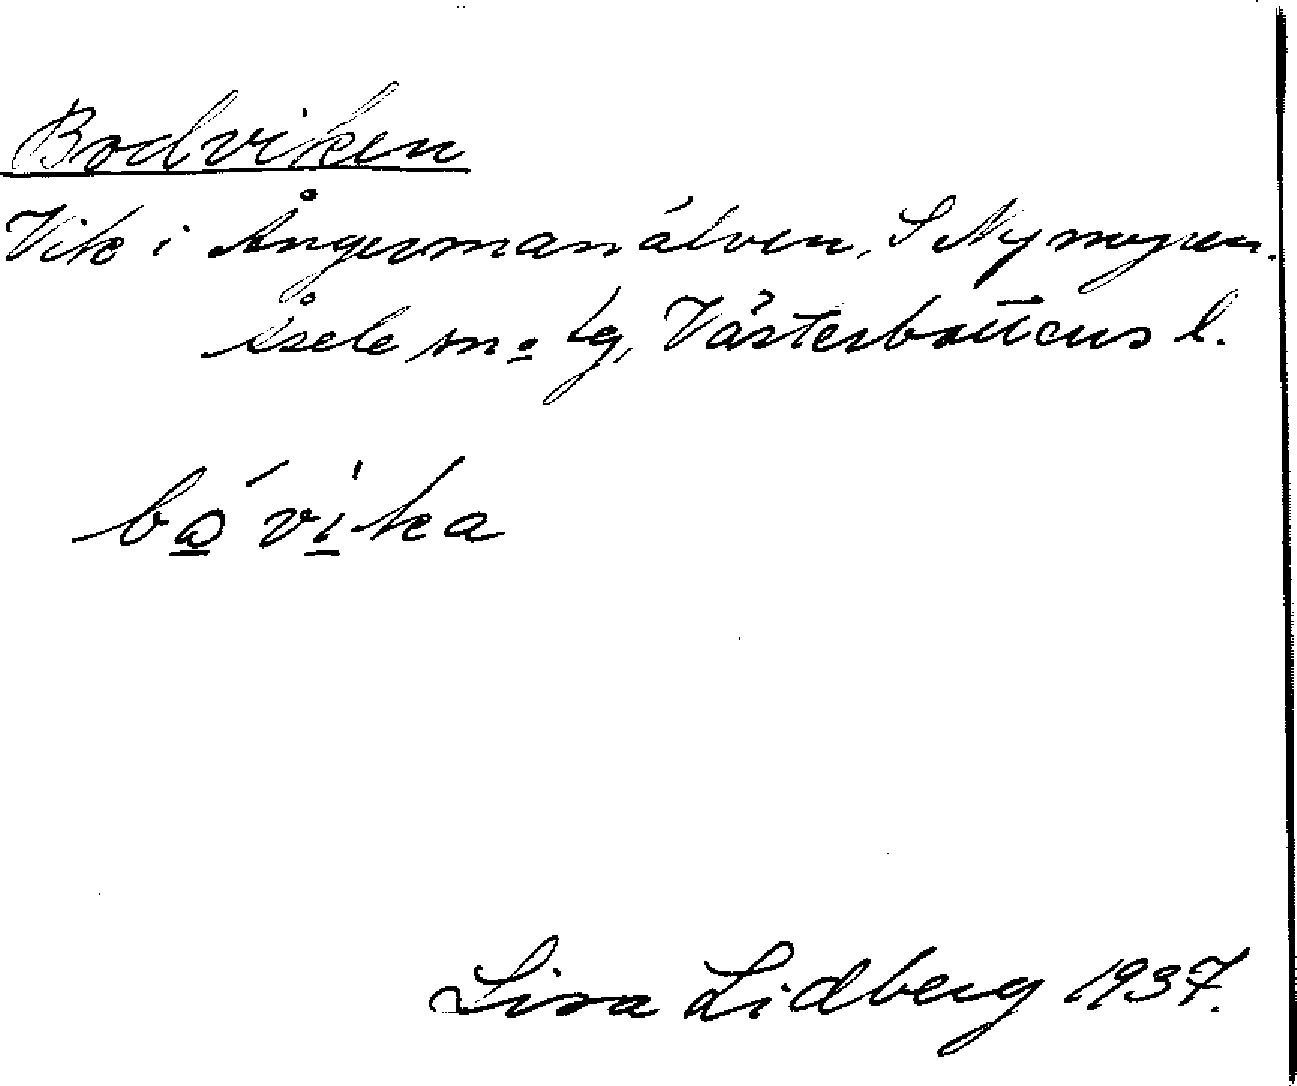 Bodviken
Vik i Ångermanälven, S Nymyren.
Åsele sn o lg, Västerbottens l.
bo̲´ vi̲'ka
Lisa Lidberg 1937.